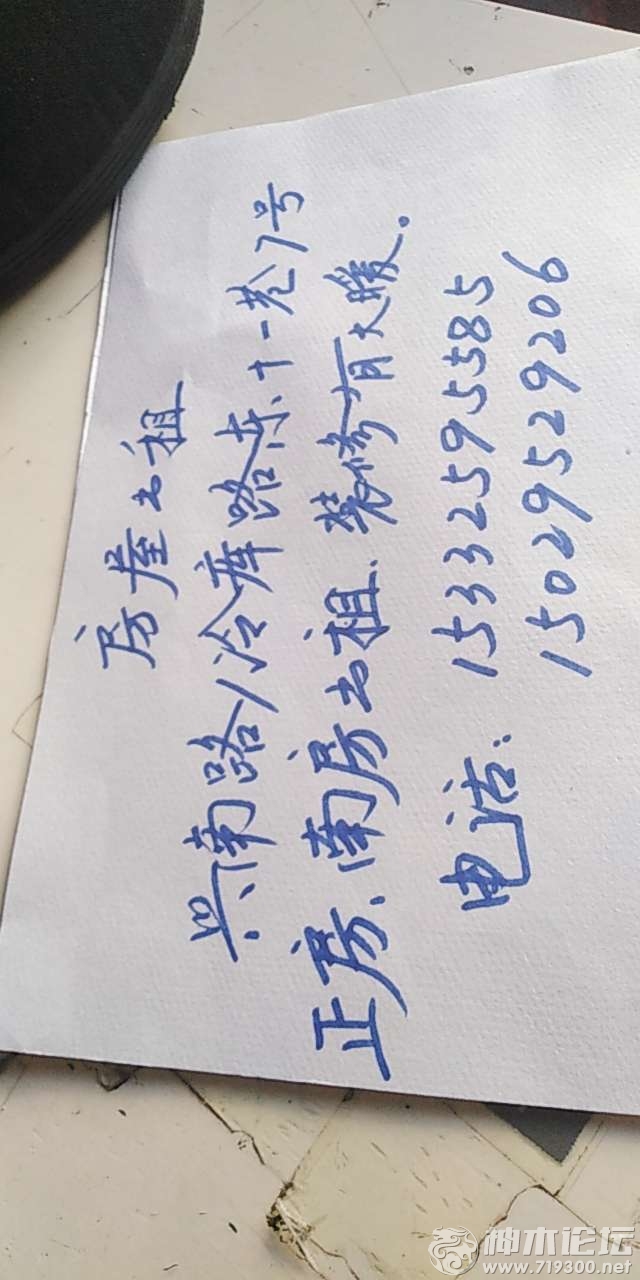 房屋出租
兴南路冷库路东十一巷7号
正房、南房出租、装修有大暖。
电话: 15332595585
15029529206
神木论坛
www.719300.net